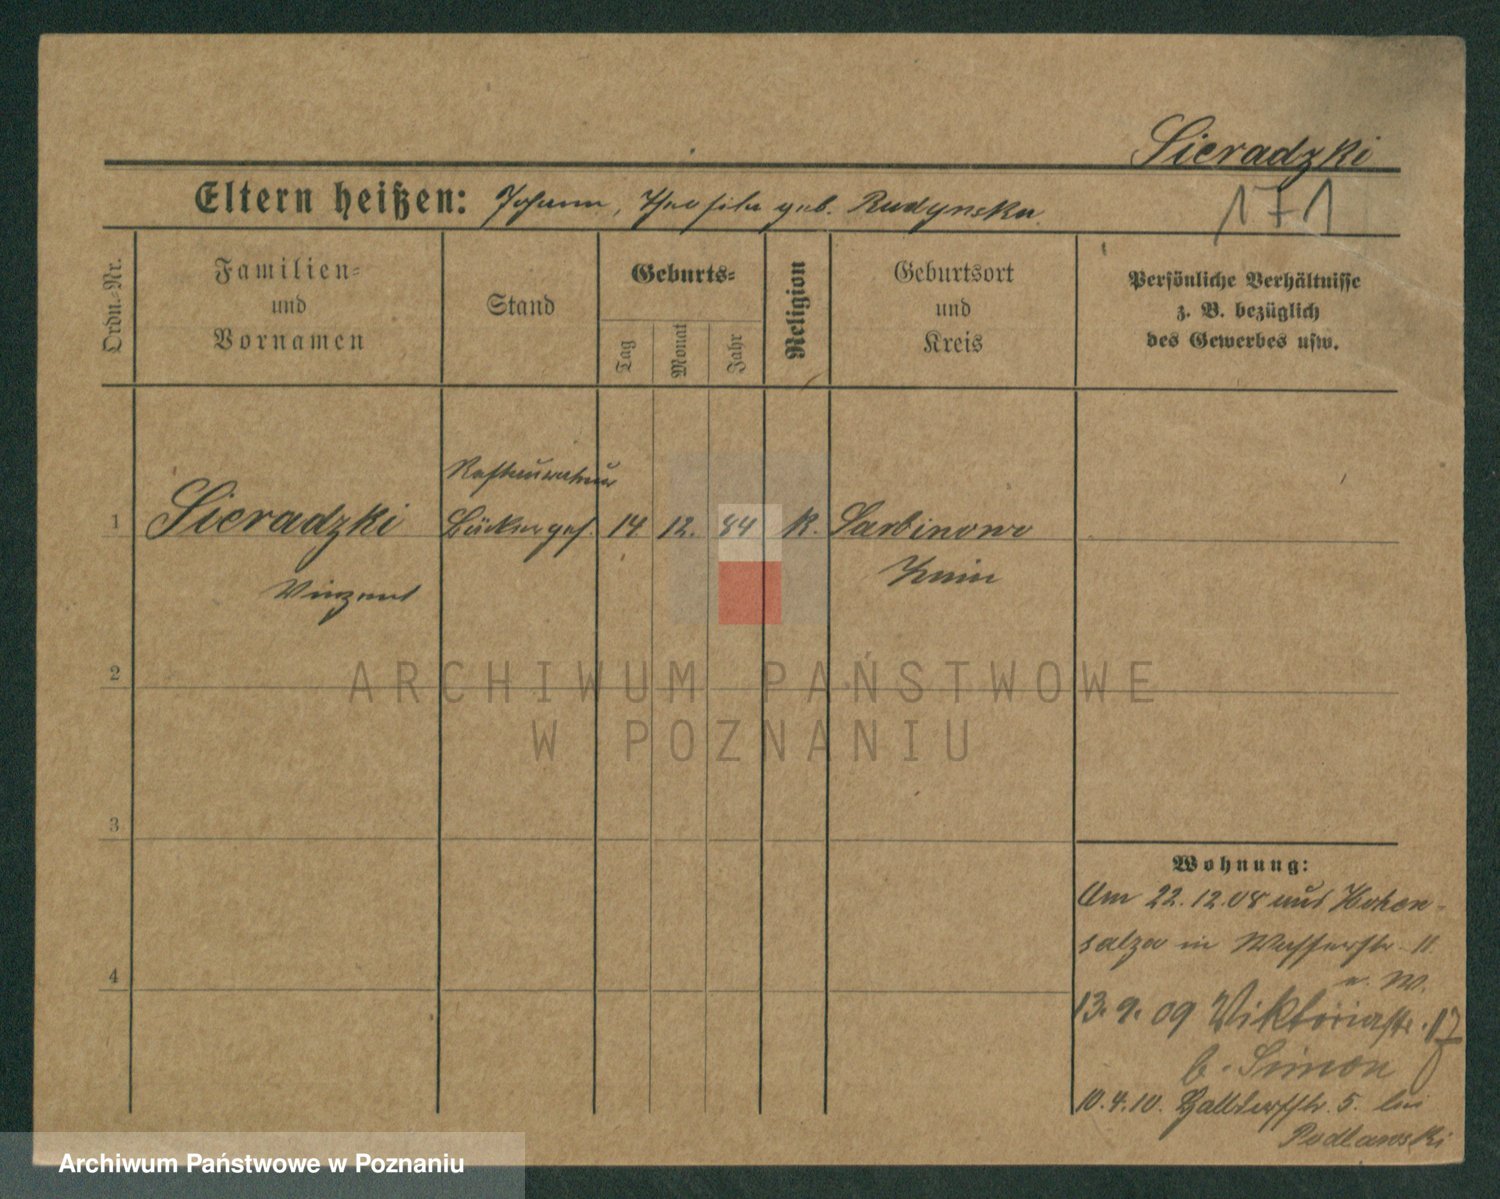 Sieradzki
171
Eltern heißen: Johann, Theofila geb. Rudynska
Ordn.-Nr.
Familien-
und
Vornamen
Stand
Geburts-
Tag
Monat
Jahr
Religion
Geburtsort
und
Kreis
Persönliche Verhältnisse
z. B. bezüglich
des Gewerbes usw.
Restaurateur
1 Sieradzki Bäckerges. 14 12. 84 K. Sarbinowo
Vinzent Znin
2
ARCHIWUM PAŃSTWOWE
W POZNANIU
3
4
Wohnung:
Am 22.12.08 aus Hohen-
salza in Wasserstr. 11
13.9.09 Viktoriastr. 17
b. Simon
10.4.10. Halldorfstr. 5. bei
Podlawski
Archiwum Państwowe w Poznaniu